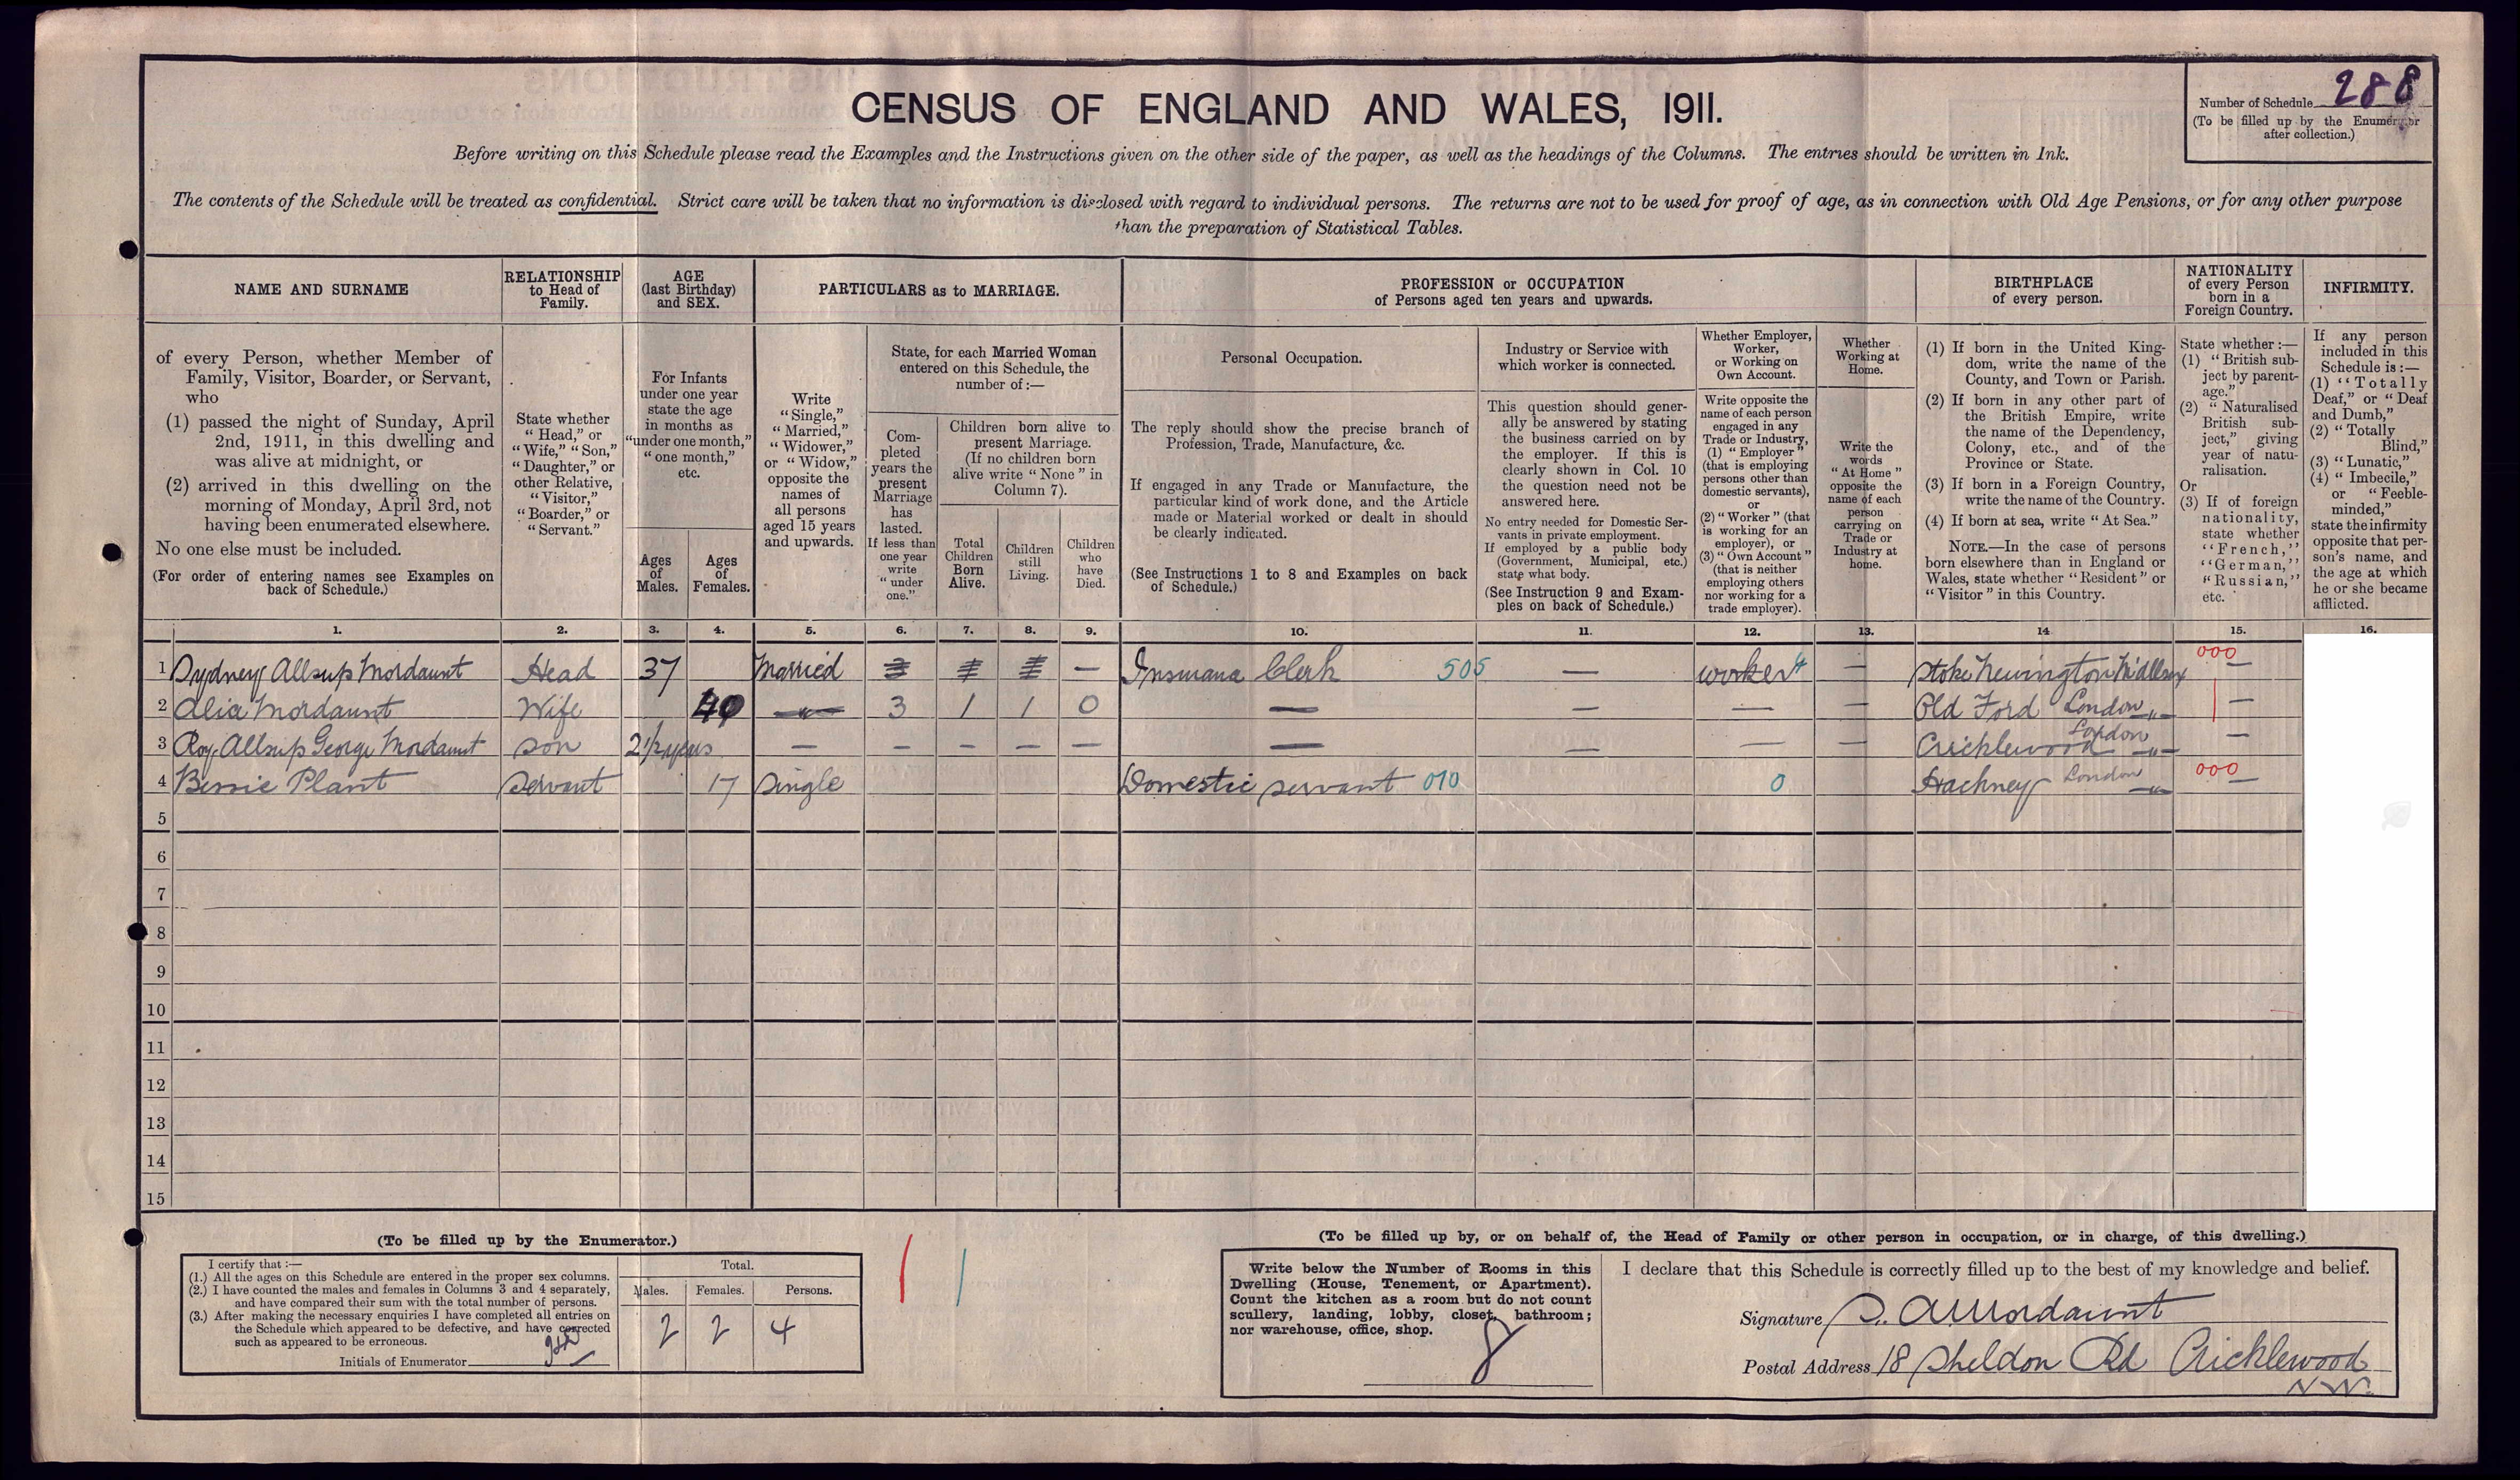 CENSUS OF ENGLAND AND WALES, 1911.
Number of Schedule 288
(To be filled up by the Enumerator
after collection.)
Before writing on this Schedule please read the Examples and the Instructions given on the other side of the paper, as well as the headings of the Columns. The entries should be written in Ink.
The contents of the Schedule will be treated as confidential. Strict care will be taken that no information is disclosed with regard to individual persons. The returns are not to be used for proof of age, as in connection with Old Age Pensions, or for any other purpose
than the preparation of Statistical Tables.
NAME AND SURNAME
of every Person, whether Member of
Family, Visitor, Boarder, or Servant,
who
(1) passed the night of Sunday, April
2nd, 1911, in this dwelling and
was alive at midnight, or
(2) arrived in this dwelling on the
morning of Monday, April 3rd, not
having been enumerated elsewhere.
No one else must be included.
(For order of entering names see Examples on
back of Schedule.)
RELATIONSHIP
to Head of
Family.
State whether
"Head," or
"Wife," "Son,"
"Daughter," or
other Relative,
"Visitor,"
"Boarder," or
"Servant."
AGE
(last Birthday)
and SEX.
For Infants
under one year
state the age
in months as
"under one month,"
"one month,"
etc.
Ages
of
Males.
Ages
of
Females.
PARTICULARS as to MARRIAGE.
Write
"Single,"
"Married,"
"Widower,"
or "Widow,"
opposite the
names of
all persons
aged 15 years
and upwards.
State, for each Married Woman
entered on this Schedule, the
number of:—
Com-
pleted
years the
present
Marriage
has
lasted.
If less than
one year
write
"under
one."
Children born alive to
present Marriage.
(If no children born
alive write "None" in
Column 7).
Total
Children
Born
Alive.
Children
still
Living.
Children
who
have
Died.
PROFESSION or OCCUPATION
of Persons aged ten years and upwards.
Personal Occupation.
The reply should show the precise branch of
Profession, Trade, Manufacture, &c.
If engaged in any Trade or Manufacture, the
particular kind of work done, and the Article
made or Material worked or dealt in should
be clearly indicated.
(See Instructions 1 to 8 and Examples on back
of Schedule.)
Industry or Service with
which worker is connected.
This question should gener-
ally be answered by stating
the business carried on by
the employer. If this is
clearly shown in Col. 10
the question need not be
answered here.
No entry needed for Domestic Ser-
vants in private employment.
If employed by a public body
(Government, Municipal, etc.)
state what body.
(See Instruction 9 and Exam-
ples on back of Schedule.)
Whether Employer,
Worker,
or Working on
Own Account.
Write opposite the
name of each person
engaged in any
Trade or Industry,
(1) "Employer"
(that is employing
persons other than
domestic servants),
or
(2) "Worker" (that
is working for an
employer), or
(3) "Own Account"
(that is neither
employing others
nor working for a
trade employer).
Whether
Working at
Home.
Write the
words
"At Home"
opposite the
name of each
person
carrying on
Trade or
Industry at
home.
BIRTHPLACE
of every person.
(1) If born in the United King-
dom, write the name of the
County, and Town or Parish.
(2) If born in any other part of
the British Empire, write
the name of the Dependency,
Colony, etc., and of the
Province or State.
(3) If born in a Foreign Country,
write the name of the Country.
(4) If born at sea, write "At Sea."
NOTE.—In the case of persons
born elsewhere than in England or
Wales, state whether "Resident" or
"Visitor" in this Country.
NATIONALITY
of every Person
born in a
Foreign Country.
State whether:—
(1) "British sub-
ject by parent-
age."
(2) "Naturalised
British sub-
ject," giving
year of natu-
ralisation.
Or
(3) If of foreign
nationality,
state whether
"French,"
"German,"
"Russian,"
etc.
INFIRMITY.
If any person
included in this
Schedule is:—
(1) "Totally
Deaf," or "Deaf
and Dumb,"
(2) "Totally
Blind,"
(3) "Lunatic,"
(4) "Imbecile,"
or "Feeble-
minded,"
state the infirmity
opposite that per-
son's name, and
the age at which
he or she became
afflicted.
1. 2. 3. 4. 5. 6. 7. 8. 9. 10. 11. 12. 13. 14 15. 16.
1 Sydney Allsup Mordaunt Head 37 Married 3 1 1 — Insurance Clerk 505 — worker 4 — Stoke Newington Middlesex 000 —
2 Mordaunt Wife 40 — 3 1 1 0 — — — — Old Ford London „ —
3 Roy Allsup George Mordaunt Son 2 1/2 years — — — — — — — — — Cricklewood London „ —
4 Bessie Plant Servant 17 Single Domestic servant 010 0 Hackney London „ 000 —
5
6
7
8
9
10
11
12
13
14
15
(To be filled up by the Enumerator.)
I certify that:—
(1.) All the ages on this Schedule are entered in the proper sex columns.
(2.) I have counted the males and females in Columns 3 and 4 separately,
and have compared their sum with the total number of persons.
(3.) After making the necessary enquiries I have completed all entries on
the Schedule which appeared to be defective, and have corrected
such as appeared to be erroneous.
Initials of Enumerator
Total.
Males. Females. Persons.
2 2 4
(To be filled up by, or on behalf of, the Head of Family or other person in occupation, or in charge, of this dwelling.)
Write below the Number of Rooms in this
Dwelling (House, Tenement, or Apartment).
Count the kitchen as a room but do not count
scullery, landing, lobby, closet, bathroom;
nor warehouse, office, shop.
8
I declare that this Schedule is correctly filled up to the best of my knowledge and belief.
Signature S. A Mordaunt
Postal Address 18 Sheldon Rd Cricklewood
N.W.